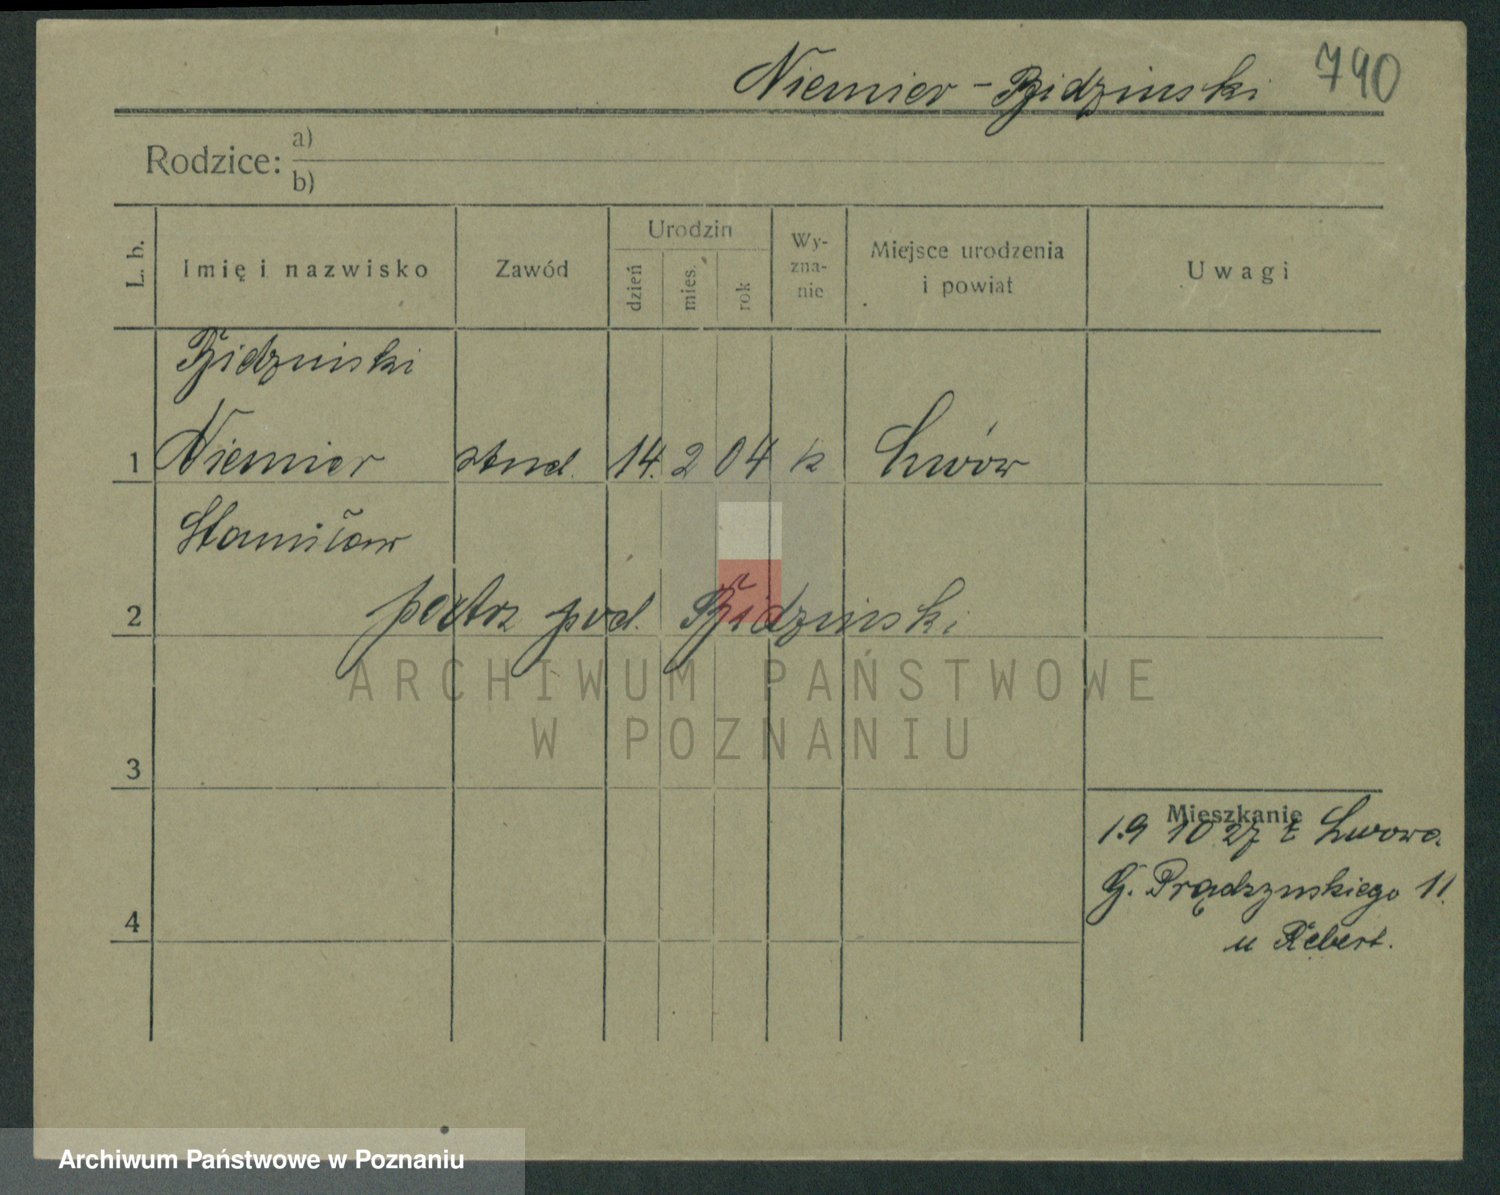 Niemier - Bidzinski 790
Rodzice: a)
b)
L. b. Imię i nazwisko Zawód Urodzin dzień mies. rok Wy-zna-nie Miejsce urodzenia i powiat Uwagi
Bidzinski
1 Niemier stud. 14. 2 04 k Lwów
Stanisław
2 patrz pod. Bidzinski
ARCHIWUM PAŃSTWOWE
W POZNANIU
3
Mieszkanie
19 10 27 z Lwowa.
G. Prądzynskiego 11.
4
u Rebert.
Archiwum Państwowe w Poznaniu